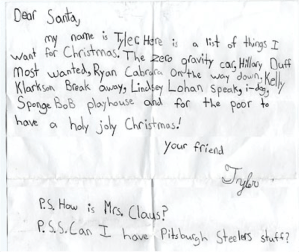 Dear Santa,
my name is Tyler. Here is a list of things I
want for Christmas. The zero gravity car, Hillary Duff
most wanted, Ryan Cabrara On the way down, Kelly
Klarkson Break away, Lindsey Lohan Speak, i-dog,
Sponge BoB playhouse and for the poor to
have a holy joly Christmas!
your friend
Tyler
P.S. How is Mrs. Claus?
P.S.S. Can I have Pitsburgh Steelers stuff?